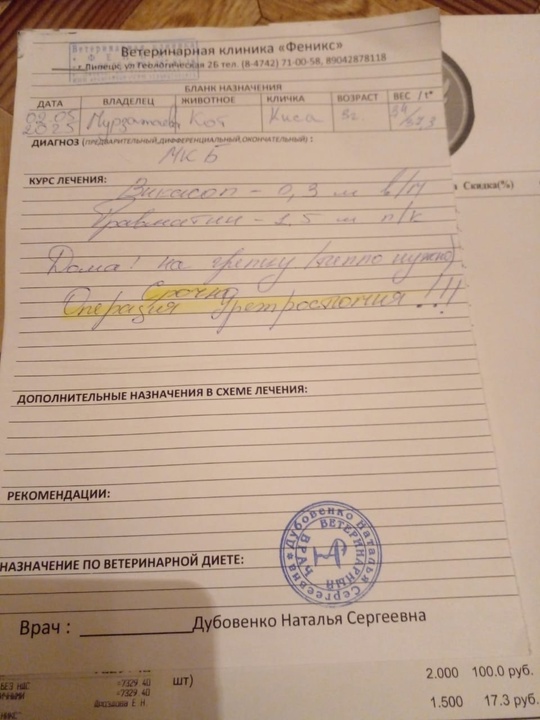 Ветеринарная клиника «Феникс»
г Липецк ул Геологическая 2б тел. (8-4742) 71-00-58, 89042878118
БЛАНК НАЗНАЧЕНИЯ
ДАТА ВЛАДЕЛЕЦ ЖИВОТНОЕ КЛИЧКА ВОЗРАСТ ВЕС / t°
02.05 2025 Кот Киса 3г.
ДИАГНОЗ (ПРЕДВАРИТЕЛЬНЫЙ,ДИФФЕРЕНЦИАЛЬНЫЙ,ОКОНЧАТЕЛЬНЫЙ) :
МКБ
КУРС ЛЕЧЕНИЯ:
Викасол - 0,3 мл в/м
Травматин - 1.5 мл п/к
Дома! на грелку /тепло нужно/
Срочно
Операция Уретростомия !!!
ДОПОЛНИТЕЛЬНЫЕ НАЗНАЧЕНИЯ В СХЕМЕ ЛЕЧЕНИЯ:
РЕКОМЕНДАЦИИ:
НАЗНАЧЕНИЕ ПО ВЕТЕРИНАРНОЙ ДИЕТЕ:
Дубовенко Наталья Сергеевна
ВЕТЕРИНАРНЫЙ ВРАЧ
Врач : ____________Дубовенко Наталья Сергеевна
Скидка(%)
шт)
2.000 100.0 руб.
1.500 17.3 руб.
=7329.40
=7329.40